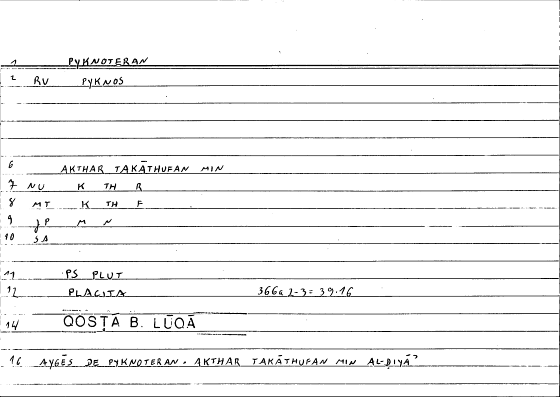 1 PYKNOTERAN
2 RV PYKNOS
6 AKTHAR TAKĀTHUFAN MIN
7 NU K TH R
8 MT K TH F
9 JP M N
10 SA
11 PS PLUT
12 PLACITA 366a 2-3 = 39.16
14 QOSṬĀ B. LŪQĀ
16 AYGĒS DE PYKNOTERAN. AKTHAR TAKĀTHUFAN MIN AL-ḌIYĀʾ